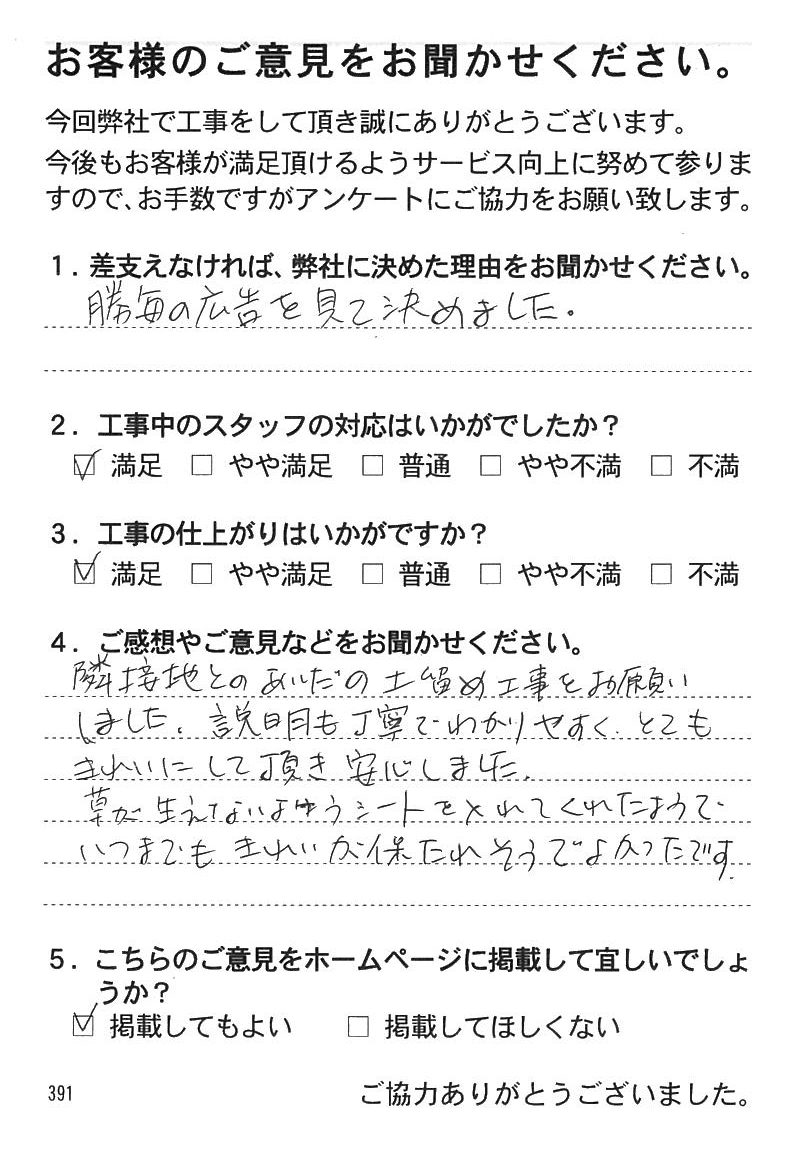 お客様のご意見をお聞かせください。
今回弊社で工事をして頂き誠にありがとうございます。
今後もお客様が満足頂けるようサービス向上に努めて参りま
すので、お手数ですがアンケートにご協力をお願い致します。
1. 差支えなければ、弊社に決めた理由をお聞かせください。
勝毎の広告を見て決めました。
2. 工事中のスタッフの対応はいかがでしたか？
☑ 満足 □ やや満足 □ 普通 □ やや不満 □ 不満
3. 工事の仕上がりはいかがですか？
☑ 満足 □ やや満足 □ 普通 □ やや不満 □ 不満
4. ご感想やご意見などをお聞かせください。
隣接地とのあいだの土留め工事をお願い
しました。説明も丁寧でわかりやすく、とても
きれいにして頂き安心しました。
草が生えないようシートを入れてくれたようで
いつまでもきれいが保たれそうでよかったです。
5. こちらのご意見をホームページに掲載して宜しいでしょ
うか？
☑ 掲載してもよい □ 掲載してほしくない
391
ご協力ありがとうございました。